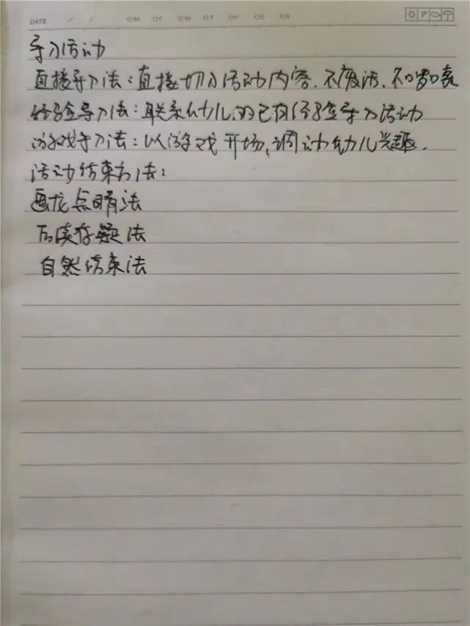 DATE
导入活动
直接导入法:直接切入活动内容.不废话.不啰嗦
经验导入法:联系幼儿的已有经验导入活动
游戏导入法:以游戏开场,调动幼儿兴趣.
活动结束方法:
画龙点睛法
后续存疑法
自然结束法